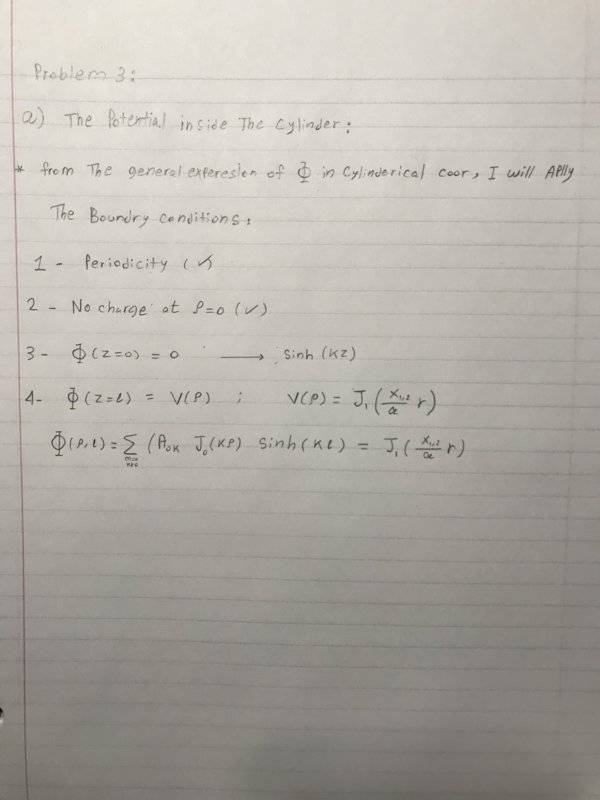 Problem 3:
a) The Potential inside The Cylinder:
* from The general experesion of Φ in Cylinderical coor, I will Aplly
The Boundry Conditions:
1 - Periodicity (✓)
2 - No charge at ρ=0 (✓)
3 - Φ(z=0) = 0 ⟶ sinh(kz)
4 - Φ(z=l) = V(ρ) ; V(ρ) = J₁(x₁,₂/a r)
Φ(ρ,l) = Σ (A₀ₖ J₀(kρ) sinh(kl) = J₁(x₁,₂/a r)